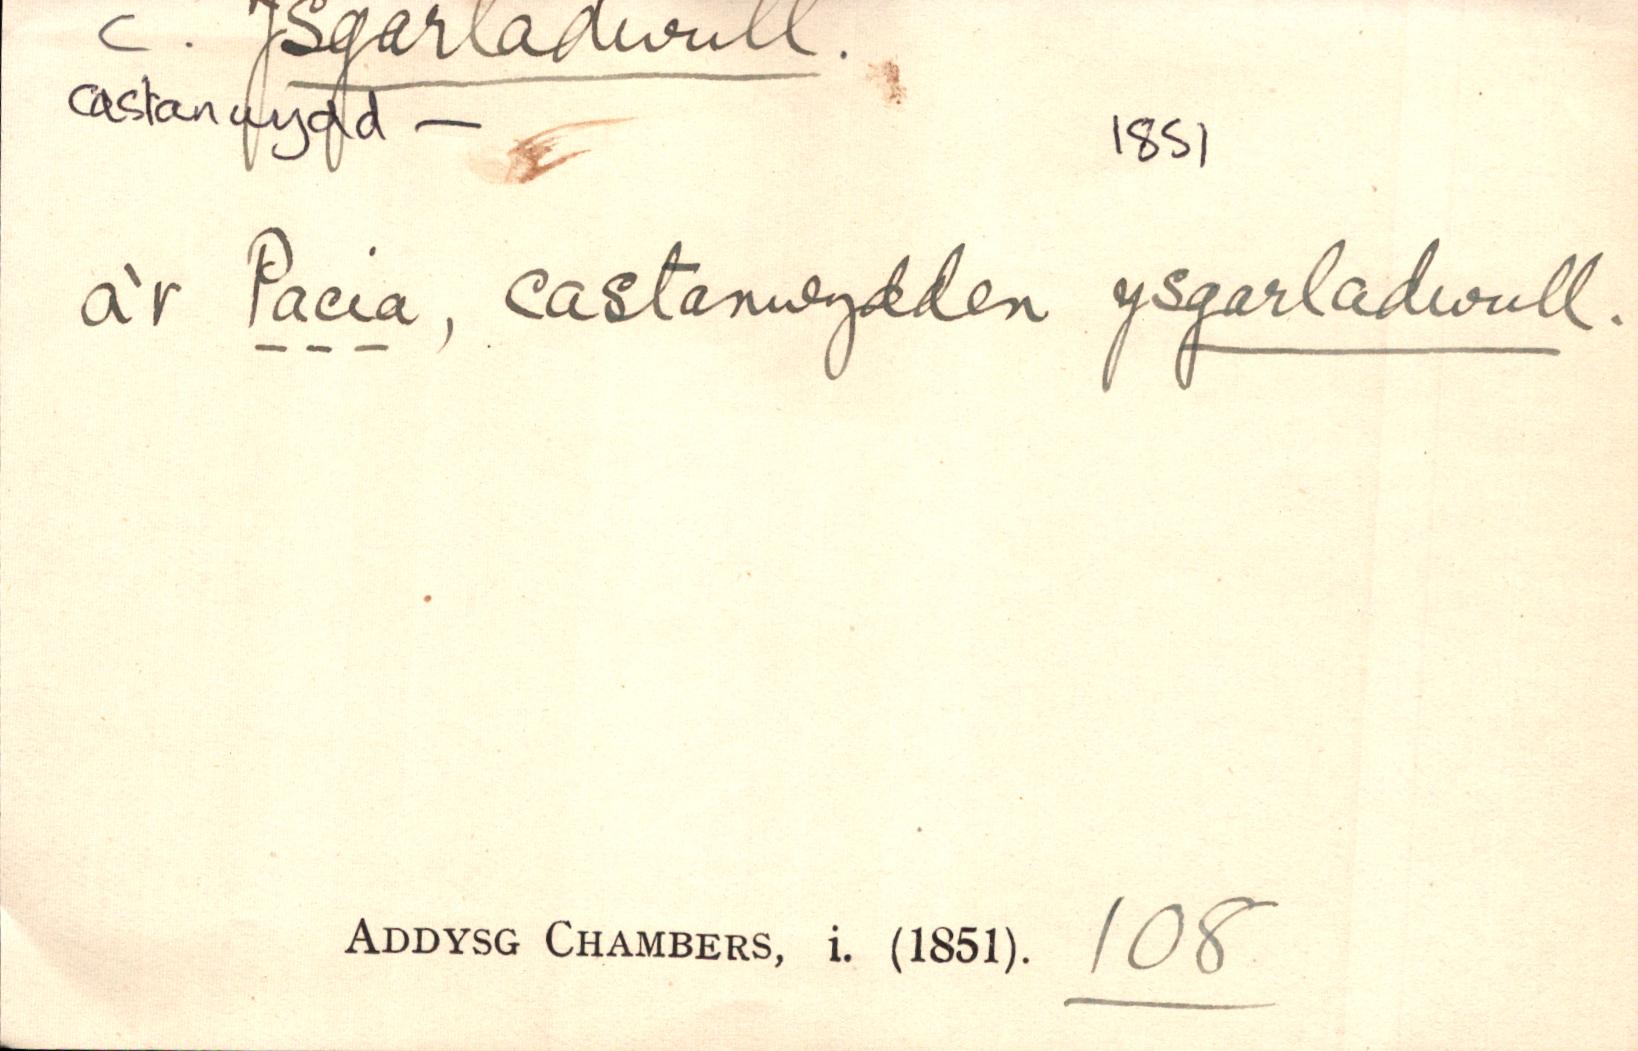 c. ysgarladwull.
castanwydd —
1851
a'r Pacia, castanwydden ysgarladwull.
ADDYSG CHAMBERS, i. (1851). 108